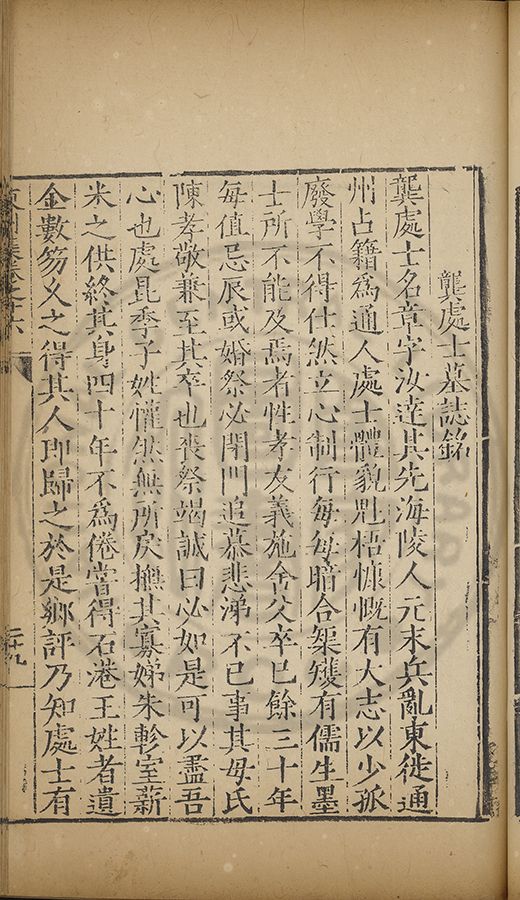 龔處士墓誌銘
龔處士名章字汝達其先海陵人元末兵亂東徙通
州占籍爲通人處士體貌魁梧慷慨有大志以少孤
廢學不得仕然立心制行每每暗合榘矱有儒生墨
士所不能及焉者性孝友義施舍父卒已餘三十年
每值忌辰或婚祭必閉門追慕悲涕不已事其母氏
陳孝敬兼至其卒也喪祭竭誠曰必如是可以盡吾
心也處昆季子姓懽然無所戾撫其寡娣朱軫室薪
米之供終其身四十年不爲倦嘗得石港王姓者遺
金數笏久之得其人即歸之於是鄉評乃知處士有
集卷之六
二十九